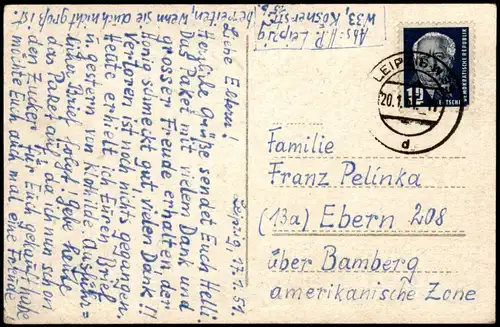 Abs.: H.P. Leipzig
W33, Kösnerstr.
Leipzig, 17.1.51.
Liebe Eltern!
Herzliche Grüße sendet Euch Helli.
Das Paket mit vielem Dank und
grosser Freude erhalten, der
Honig schmeckt gut, vielen Dank!!
Verloren ist noch nichts gegangen.
Heute erhielt ich Euren Brief
u. gestern von Klothilde. Ausführ=
licher Brief folgt! Gebe heute
das Paket auf, da ich nun schon
den Zucker für Euch gekauft habe,
möchte Euch auch mal eine Freude
bereiten, wenn sie auch nicht groß ist.
LEIPZIG
20.1.51
d
12
DEUTSCHE DEMOKRATISCHE REPUBLIK
Familie
Franz Pelinka
(13a) Ebern 208
über Bamberg
amerikanische Zone